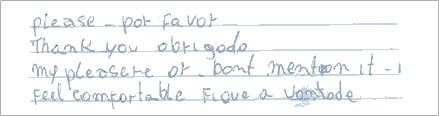 please - por favor
Thank you obrigado
my pleasere or - Dont mention it - i
Feel comfortable Fique a vontade